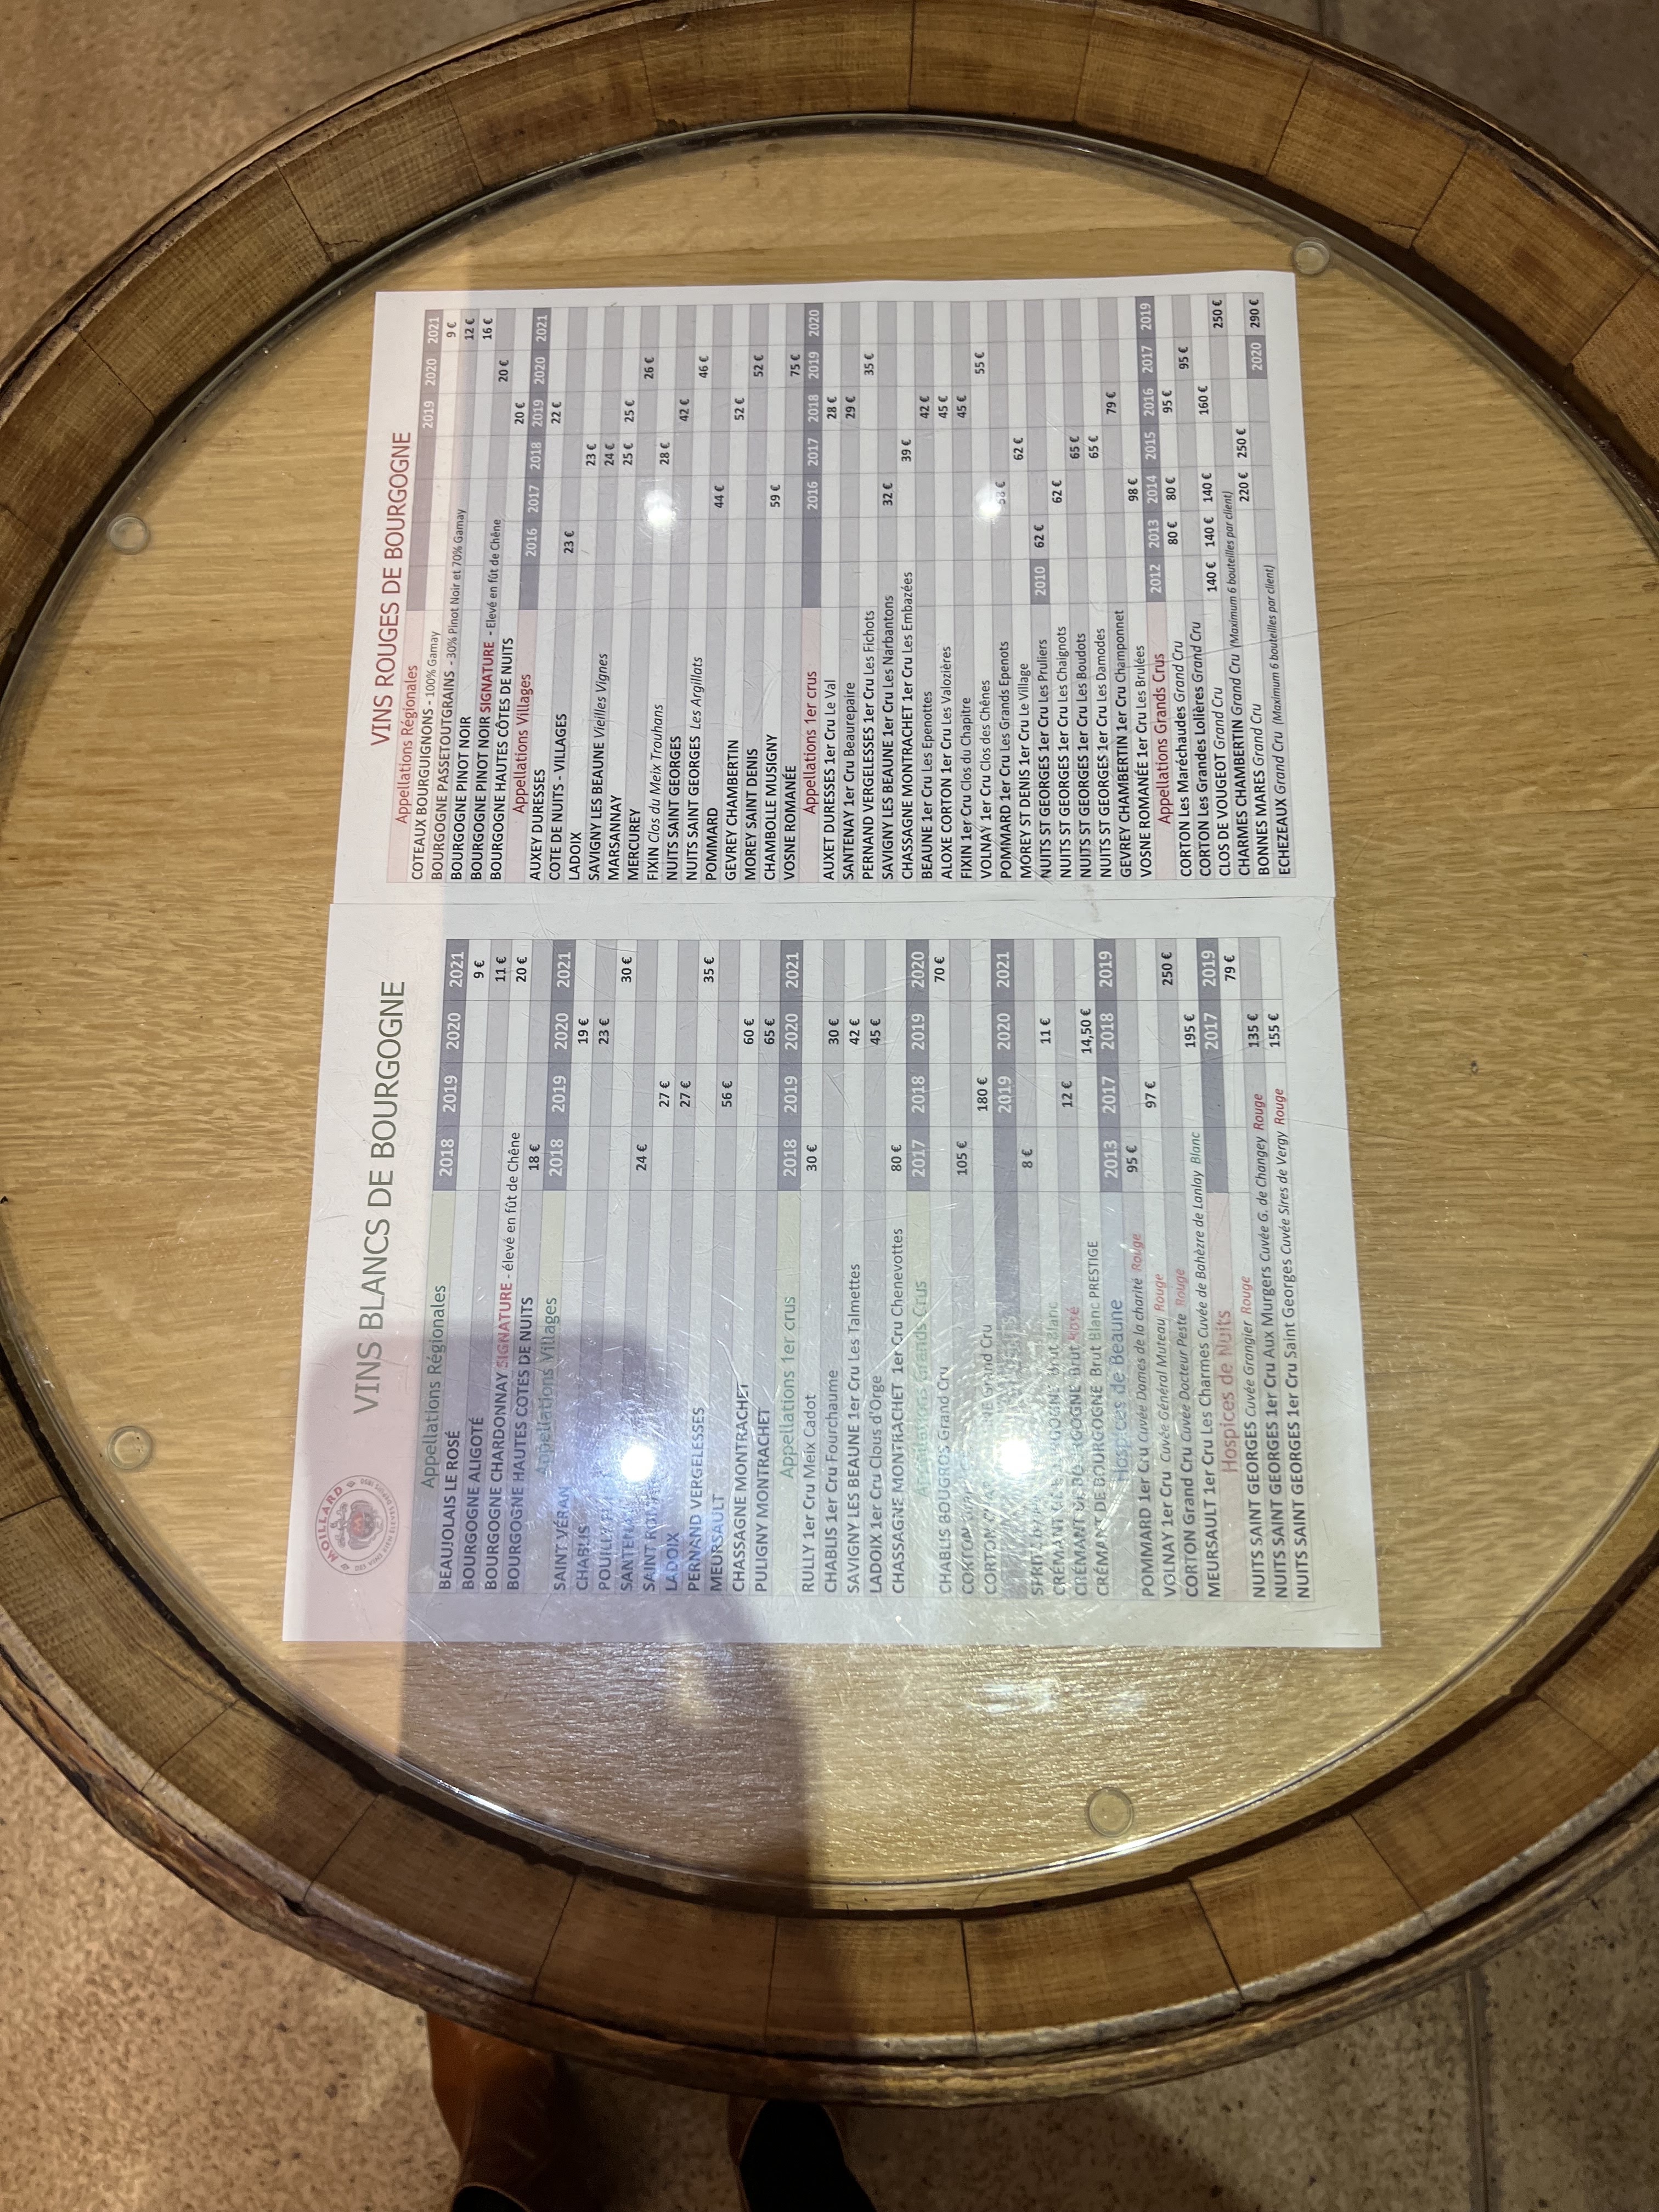 MOILLARD
VINS BLANCS DE BOURGOGNE
Appellations Régionales 2018 2019 2020 2021
BEAUJOLAIS LE ROSÉ 9 €
BOURGOGNE ALIGOTÉ 11 €
BOURGOGNE CHARDONNAY SIGNATURE - élevé en fût de Chêne 20 €
BOURGOGNE HAUTES COTES DE NUITS 18 €
Appellations Villages 2018 2019 2020 2021
SAINT VÉRAN 19 €
CHABLIS 23 €
30 €
24 €
SAINT 27 €
LADOIX 27 €
PERNAND VERGELESSES 35 €
MEURSAULT 56 €
CHASSAGNE MONTRACHET 60 €
PULIGNY MONTRACHET 65 €
Appellations 1er crus 2018 2019 2020 2021
RULLY 1er Cru Meix Cadot 30 €
CHABLIS 1er Cru Fourchaume 30 €
SAVIGNY LES BEAUNE 1er Cru Les Talmettes 42 €
LADOIX 1er Cru Clous d'Orge 45 €
CHASSAGNE MONTRACHET 1er Cru Chenevottes 80 €
Appellations Grands Crus 2017 2018 2019 2020
CHABLIS BOUGROS Grand Cru 70 €
CORTON 105 €
CORTON Grand Cru 180 €
2019 2020 2021
8 €
CRÉMANT DE BOURGOGNE Brut Blanc 11 €
CRÉMANT DE BOURGOGNE Brut Rosé 12 €
CRÉMANT DE BOURGOGNE Brut Blanc PRESTIGE 14,50 €
Hospices de Beaune 2013 2017 2018 2019
POMMARD 1er Cru Cuvée Dames de la charité Rouge 95 €
VOLNAY 1er Cru Cuvée Général Muteau Rouge 97 €
CORTON Grand Cru Cuvée Docteur Peste Rouge 250 €
MEURSAULT 1er Cru Les Charmes Cuvée de Bahèzre de Lanlay Blanc 195 €
Hospices de Nuits 2017 2019
NUITS SAINT GEORGES Cuvée Grangier Rouge 79 €
NUITS SAINT GEORGES 1er Cru Aux Murgers Cuvée G. de Changey Rouge 135 €
NUITS SAINT GEORGES 1er Cru Saint Georges Cuvée Sires de Vergy Rouge 155 €
VINS ROUGES DE BOURGOGNE
Appellations Régionales 2019 2020 2021
COTEAUX BOURGUIGNONS - 100% Gamay 9 €
BOURGOGNE PASSETOUTGRAINS - 30% Pinot Noir et 70% Gamay 12 €
BOURGOGNE PINOT NOIR 16 €
BOURGOGNE PINOT NOIR SIGNATURE - Elevé en fût de Chêne 20 €
BOURGOGNE HAUTES CÔTES DE NUITS 20 €
Appellations Villages 2016 2017 2018 2019 2020 2021
AUXEY DURESSES 22 €
COTE DE NUITS - VILLAGES 23 €
LADOIX 23 €
SAVIGNY LES BEAUNE Vieilles Vignes 24 €
MARSANNAY 25 € 25 €
MERCUREY 26 €
FIXIN Clos du Meix Trouhans 28 €
NUITS SAINT GEORGES 42 €
NUITS SAINT GEORGES Les Argillats 46 €
POMMARD 44 €
GEVREY CHAMBERTIN 52 €
MOREY SAINT DENIS 52 €
CHAMBOLLE MUSIGNY 59 €
VOSNE ROMANÉE 75 €
Appellations 1er crus 2016 2017 2018 2019 2020
AUXET DURESSES 1er Cru Le Val 28 €
SANTENAY 1er Cru Beaurepaire 29 €
PERNAND VERGELESSES 1er Cru Les Fichots 35 €
SAVIGNY LES BEAUNE 1er Cru Les Narbantons 32 €
CHASSAGNE MONTRACHET 1er Cru Les Embazées 39 €
BEAUNE 1er Cru Les Epenottes 42 €
ALOXE CORTON 1er Cru Les Valozières 45 €
FIXIN 1er Cru Clos du Chapitre 45 €
VOLNAY 1er Cru Clos des Chênes 55 €
POMMARD 1er Cru Les Grands Epenots
MOREY ST DENIS 1er Cru Le Village 62 €
NUITS ST GEORGES 1er Cru Les Pruliers 2010 62 €
NUITS ST GEORGES 1er Cru Les Chaignots 62 €
NUITS ST GEORGES 1er Cru Les Boudots 65 €
NUITS ST GEORGES 1er Cru Les Damodes 65 €
GEVREY CHAMBERTIN 1er Cru Champonnet 79 €
VOSNE ROMANÉE 1er Cru Les Brulées 98 €
Appellations Grands Crus 2012 2013 2014 2015 2016 2017 2019
CORTON Les Maréchaudes Grand Cru 80 € 80 € 95 €
CORTON Les Grandes Lolières Grand Cru 95 €
CLOS DE VOUGEOT Grand Cru 140 € 140 € 140 € 160 €
CHARMES CHAMBERTIN Grand Cru (Maximum 6 bouteilles par client) 250 €
BONNES MARES Grand Cru 220 € 250 €
ECHEZEAUX Grand Cru (Maximum 6 bouteilles par client) 2020 290 €